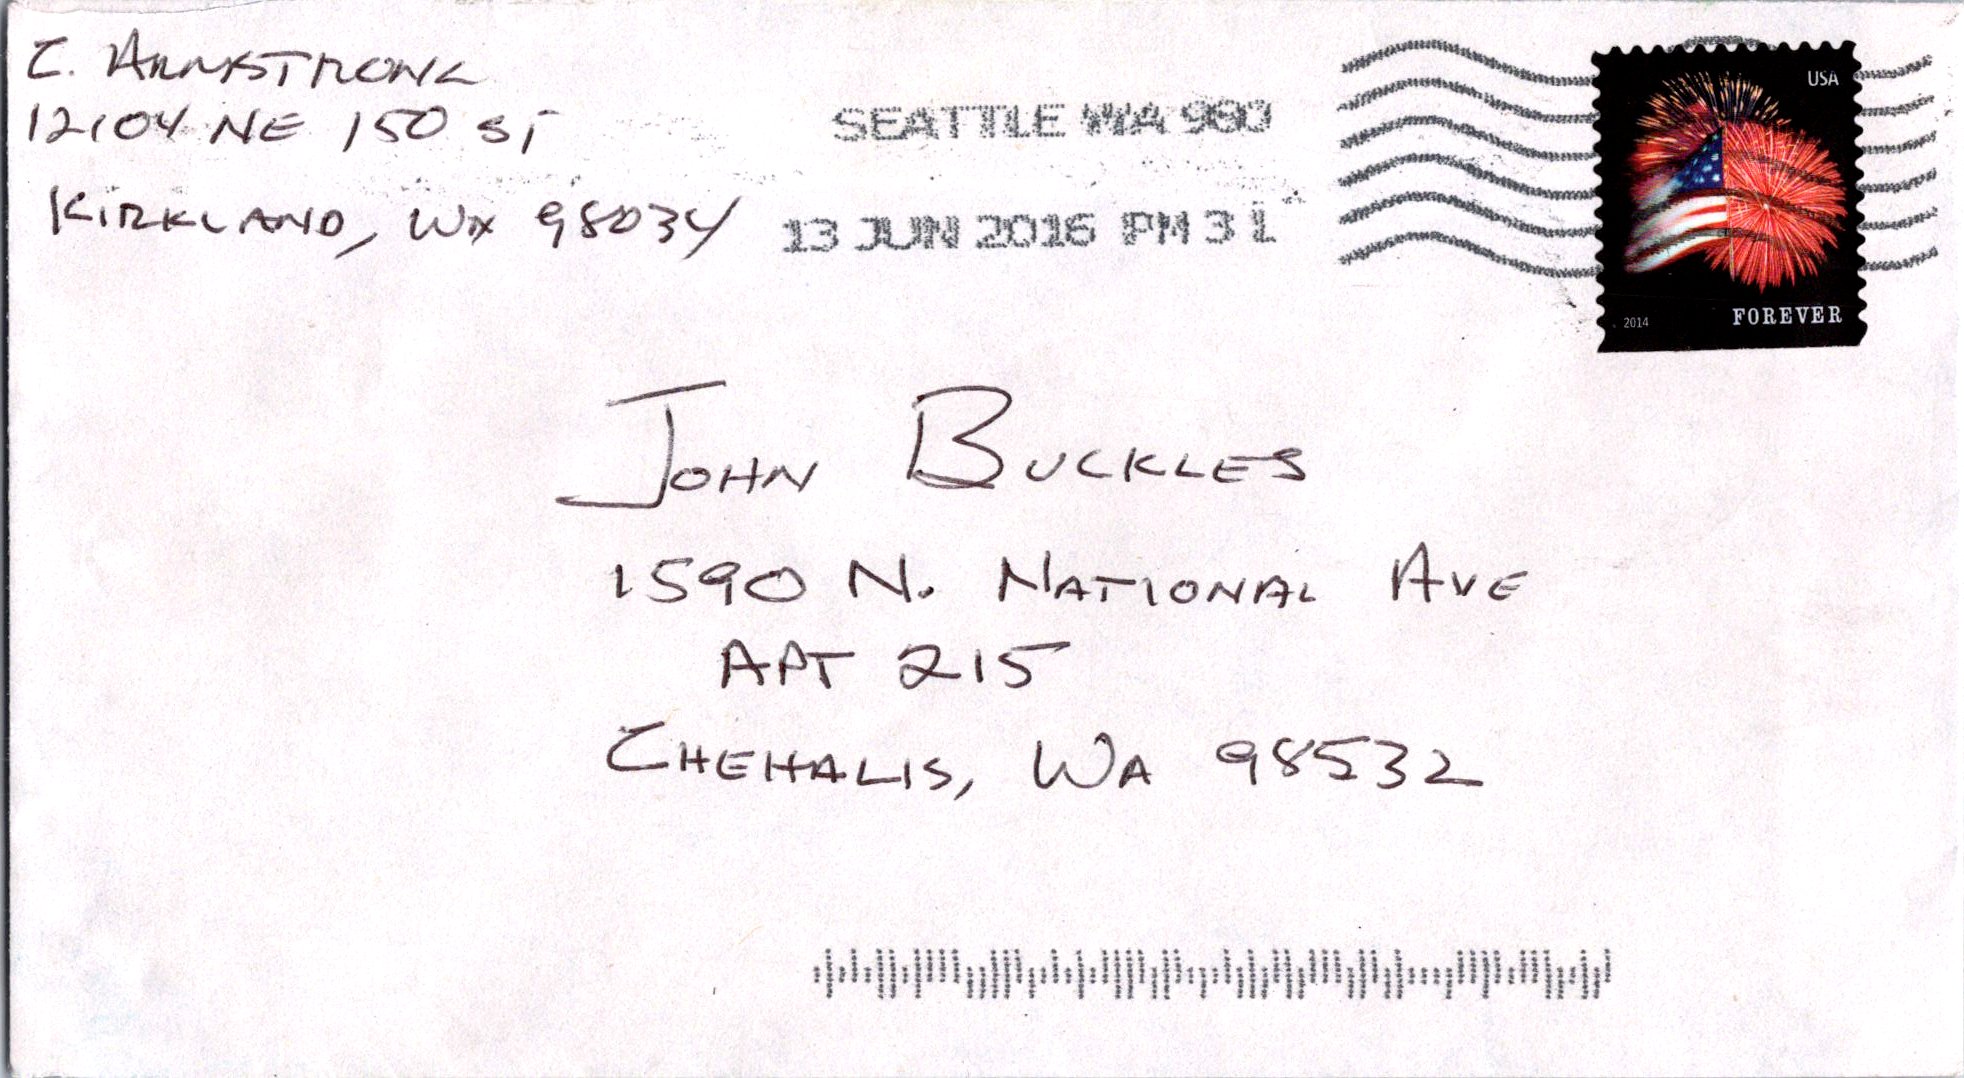 C. ARMSTRONG
12104 NE 150 ST
KIRKLAND, WA 98034
SEATTLE WA 980
13 JUN 2016 PM 3 L
USA
2014
FOREVER
JOHN BUCKLES
1590 N. NATIONAL AVE
APT 215
CHEHALIS, WA 98532